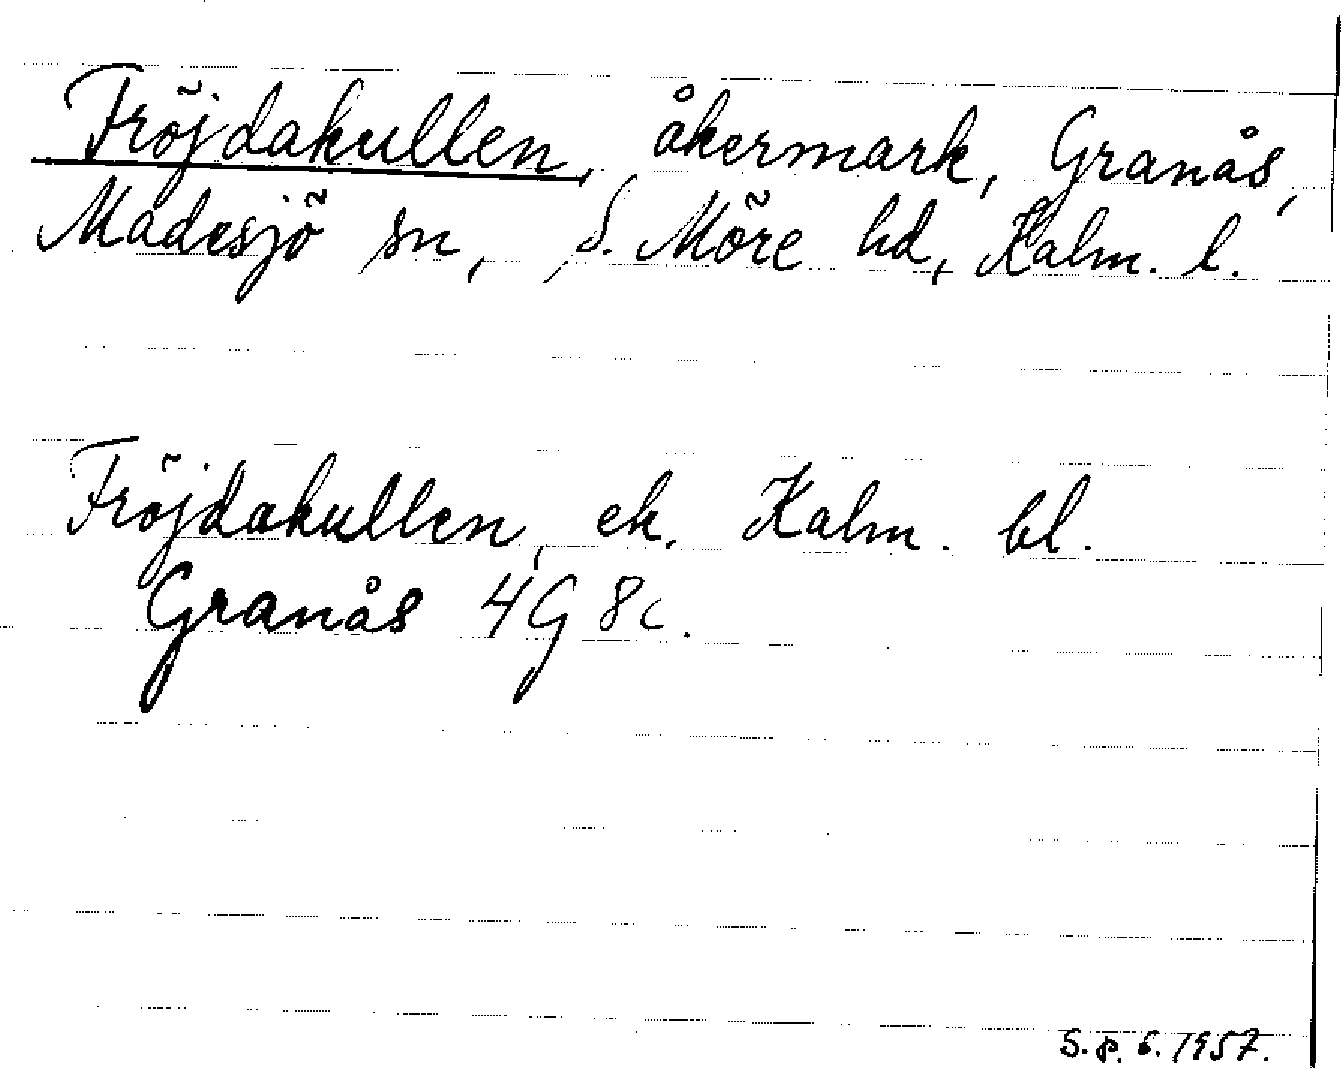 Fröjdakullen, åkermark, Granås,
Madesjö sn, S. Möre hd, Kalm. l.
Fröjdakullen, ek. Kalm. bl.
Granås 4G 8c.
S. p. 6. 1957.